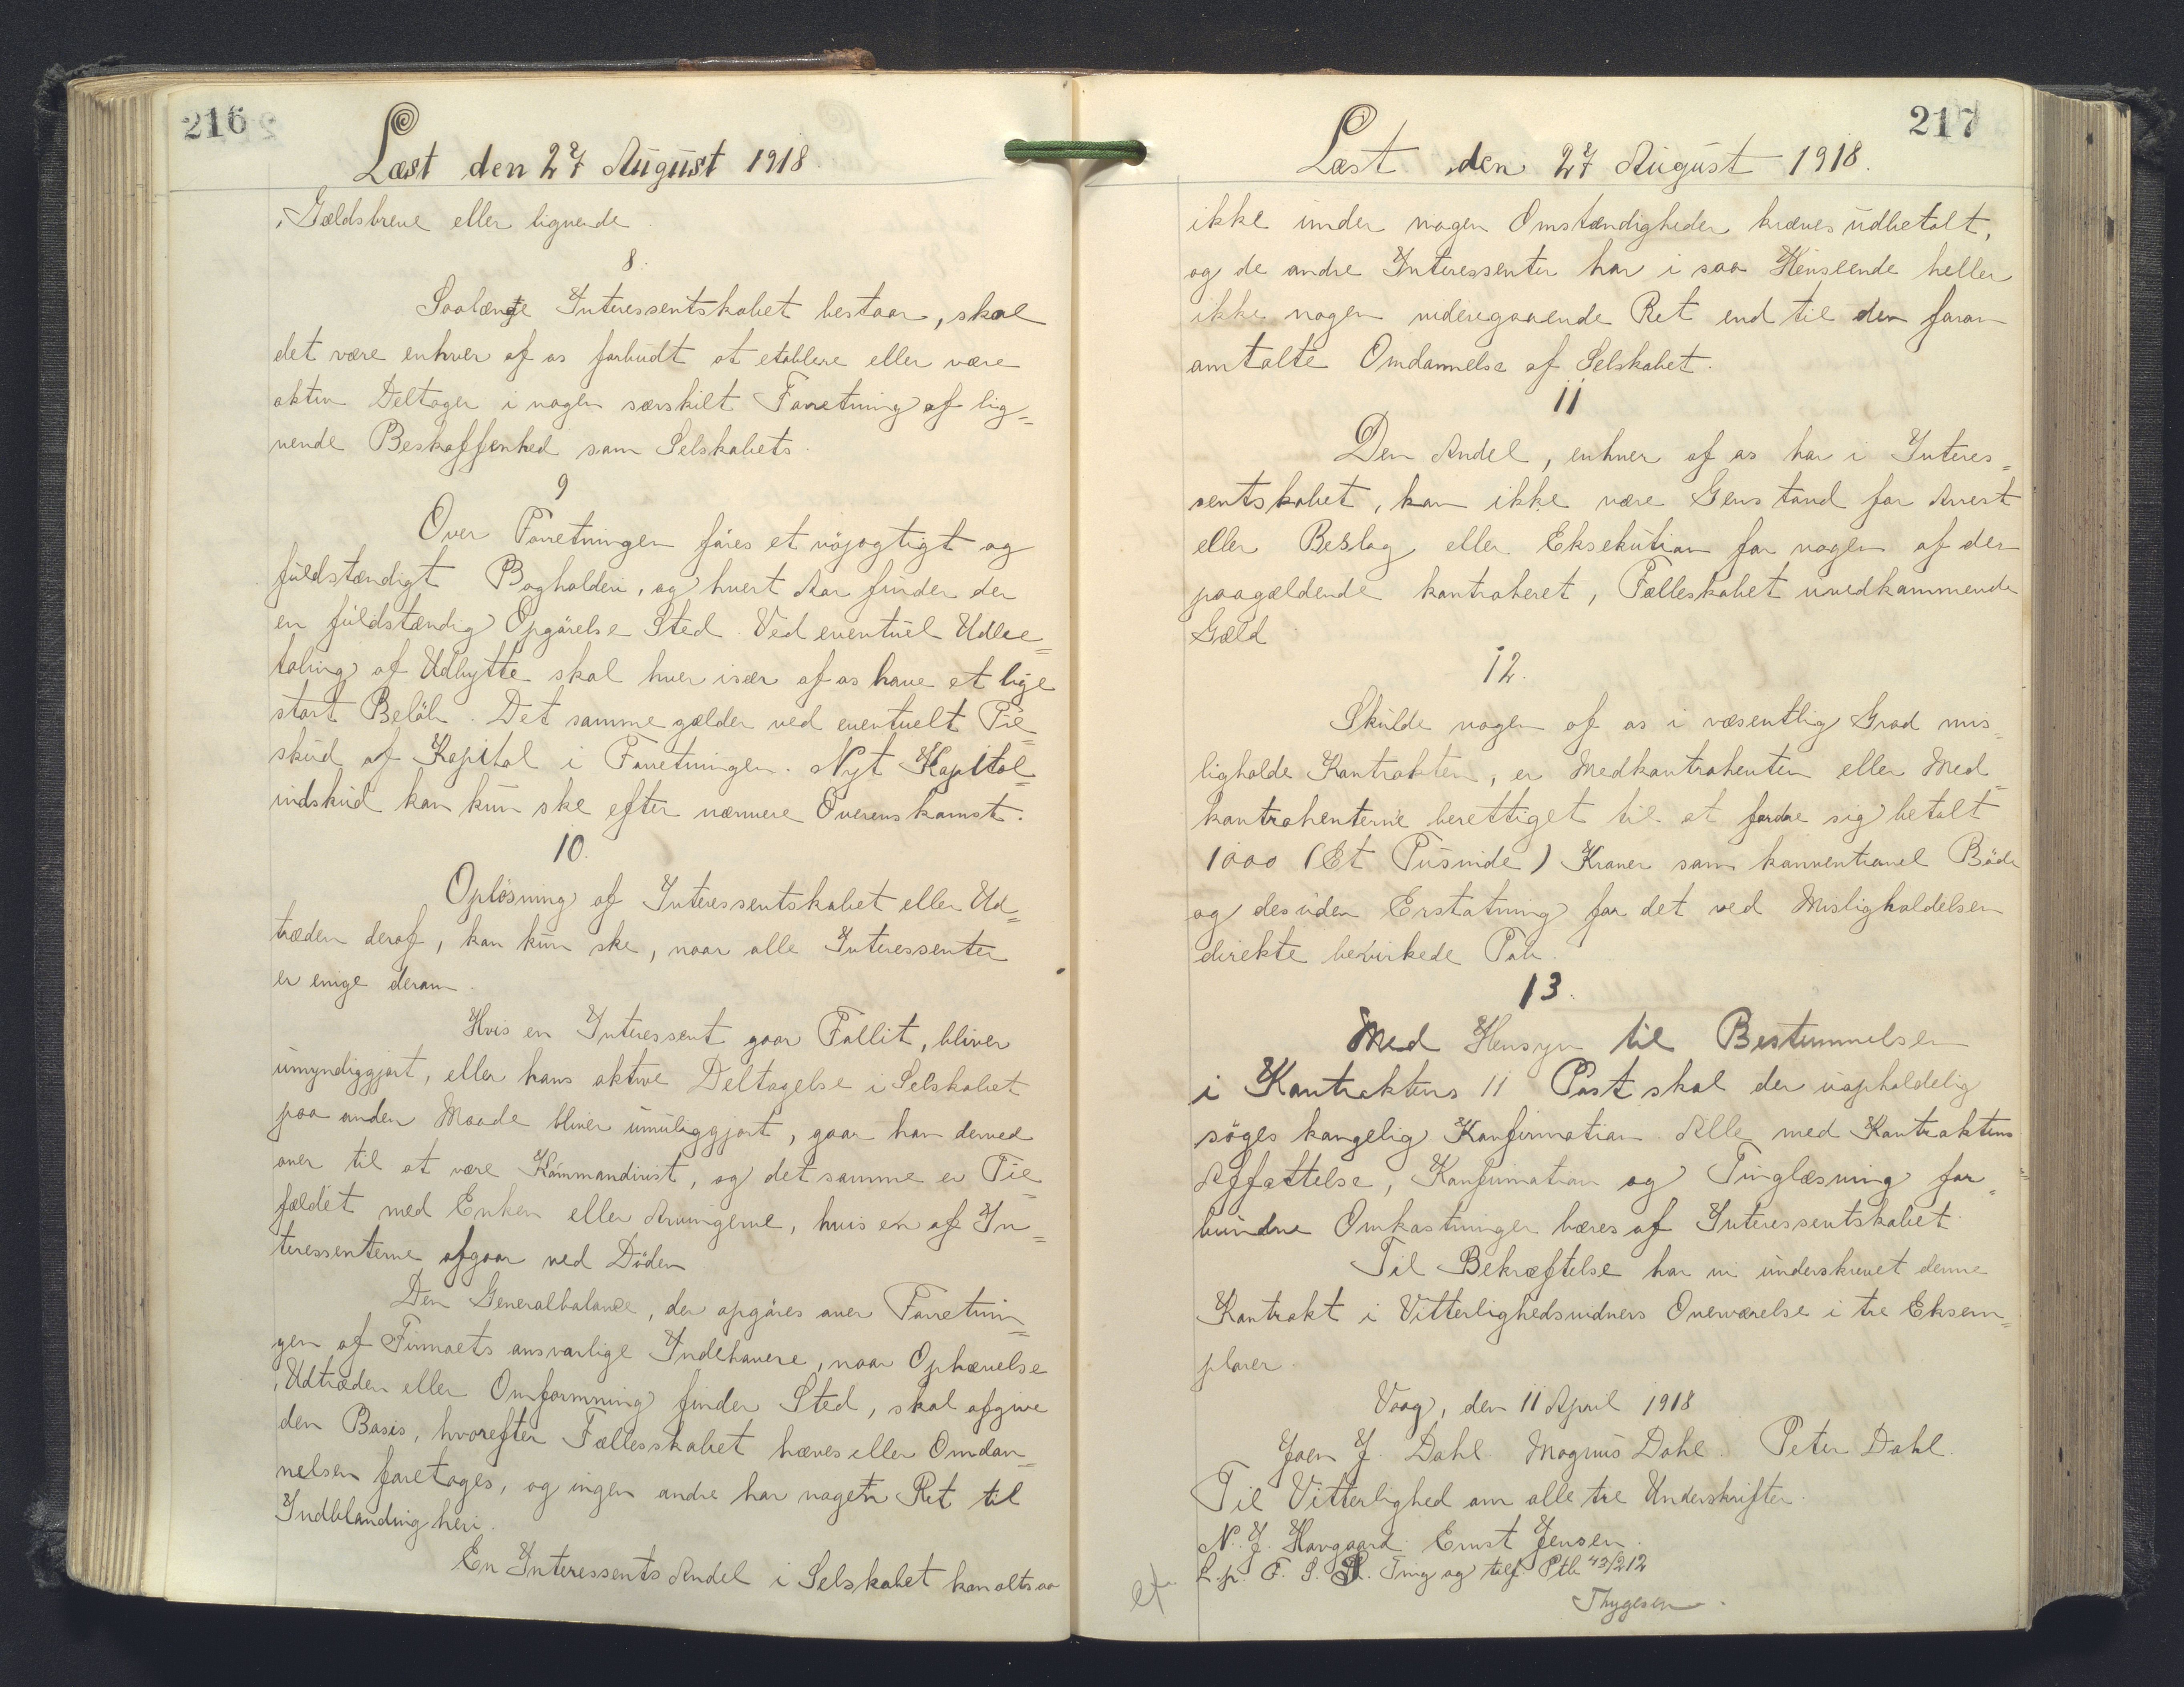 216
Læst den 27 August 1918.
, Gældsbreve eller lignende.
8.
Saalænge Interessentskabet bestaar, skal
det være enhver af os forbudt at etablere eller være
aktiv Deltager i nogen særskilt Forretning af lig=
nende Beskaffenhed som Selskabets.
9
Over Forretningen føres et nøjagtigt og
fuldstændigt Bogholderi, og hvert Aar finder der
en fuldstændig Opgørelse Sted. Ved eventuel Udbe=
taling af Udbytte skal hver især af os have et lige
stort Beløb. Det samme gælder ved eventuelt Til=
skud af Kapital i Forretningen. Nyt Kapital=
indskud kan kun ske efter nærmere Overenskomst.
10.
Opløsning af Interessentskabet eller Ud=
træden deraf, kan kun ske, naar alle Interessenter
er enige derom.
Hvis en Interessent gaar Fallit, bliver
umyndiggjort, eller hans aktive Deltagelse i Selskabet
paa anden Maade bliver umuliggjort, gaar han derved
over til at være Kommanditist, og det samme er Til=
fældet med Enken eller Arvingerne, hvis en af In=
teressenterne afgaar ved Døden
Den Generalbalance, der opgøres over Forretnin=
gen af Firmaets ansvarlige Indehavere, naar Ophævelse
, Udtræden eller Omformning finder Sted, skal afgive
den Basis, hvorefter Fællesskabet hæves eller Omdan=
nelsen foretages, og ingen andre har nogen Ret til
Indblanding heri.
En Interessents Andel i Selskabet kan altsaa
217
Læst den 27 August 1918.
ikke under nogen Omstændigheder kræves udbetalt,
og de andre Interessenter har i saa Henseende heller
ikke nogen videregaaende Ret end til den foran
omtalte Omdannelse af Selskabet.
11
Den Andel, enhver af os har i Interes=
sentskabet, kan ikke være Genstand for Arrest
eller Beslag eller Eksekution for nogen af den
paagældende kontraheret, Fælleskabet uvedkommende
Gæld
12.
Skulde nogen af os i væsentlig Grad mis=
ligholde Kontrakten, er Medkontrahenten eller Med=
kontrahenterne berettiget til at fordre sig betalt
1000 (Et Tusinde) Kroner som konventionel Bøde
og desuden Erstatning for det ved Misligholdelsen
direkte bevirkede Tab.
13.
Med Hensyn til Bestemmelsen
i Kontraktens 11 Post skal der uopholdelig
søges kongelig Konfirmation. Alle med Kontraktens
Affattelse, Konfirmation og Tinglæsning for=
bundne Omkostninger bæres af Interessentskabet.
Til Bekræftelse har vi underskrevet denne
Kontrakt i Vitterlighedsvidners Overværelse i tre Eksem=
plarer.
Vaag, den 11 April 1918
Joen J. Dahl. Magnus Dahl. Peter Dahl.
Til Vitterlighed om alle tre Underskrifter.
N. J. Havgaard. Ernst Jensen.
L. p. F. S. Ting og tilf. Ptb 43/212
Thygesen.